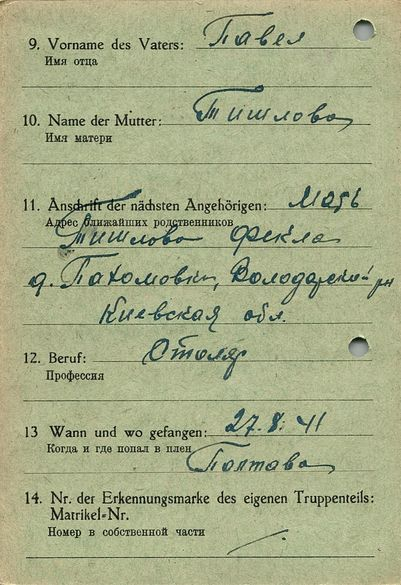 9. Vorname des Vaters: Павел
Имя отца
10. Name der Mutter: Тишлова
Имя матери
11. Anschrift der nächsten Angehörigen: Мать
Адрес ближайших родственников
Тишлова Фекла
д. Пахомовка, Володарской рн
Киевская обл.
12. Beruf: Столяр
Профессия
13 Wann und wo gefangen: 27.8.41
Когда и где попал в плен
Полтава
14. Nr. der Erkennungsmarke des eigenen Truppenteils:
Matrikel-Nr.
Номер в собственной части